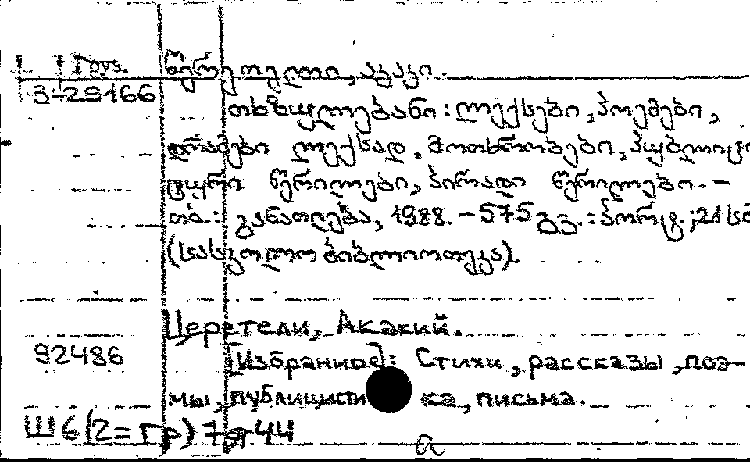 Груз.
წერეთელი, აკაკი.
3-29166
თხზულებანი: ლექსები, პოემები,
დრამები ლექსად, მოთხრობები, პუბლიცი
ცური წერილები, პირადი წერილები. –
თბ.: განათლება, 1988. – 575 გვ.: პორტ.; 21 სმ
(სასკოლო ბიბლიოთეკა).
Церетели, Акакий.
92486
[Избранное]: Стихи, рассказы, поэ-
мы, публицисти ка, письма.
Ш6(2=Гр)7я44
a